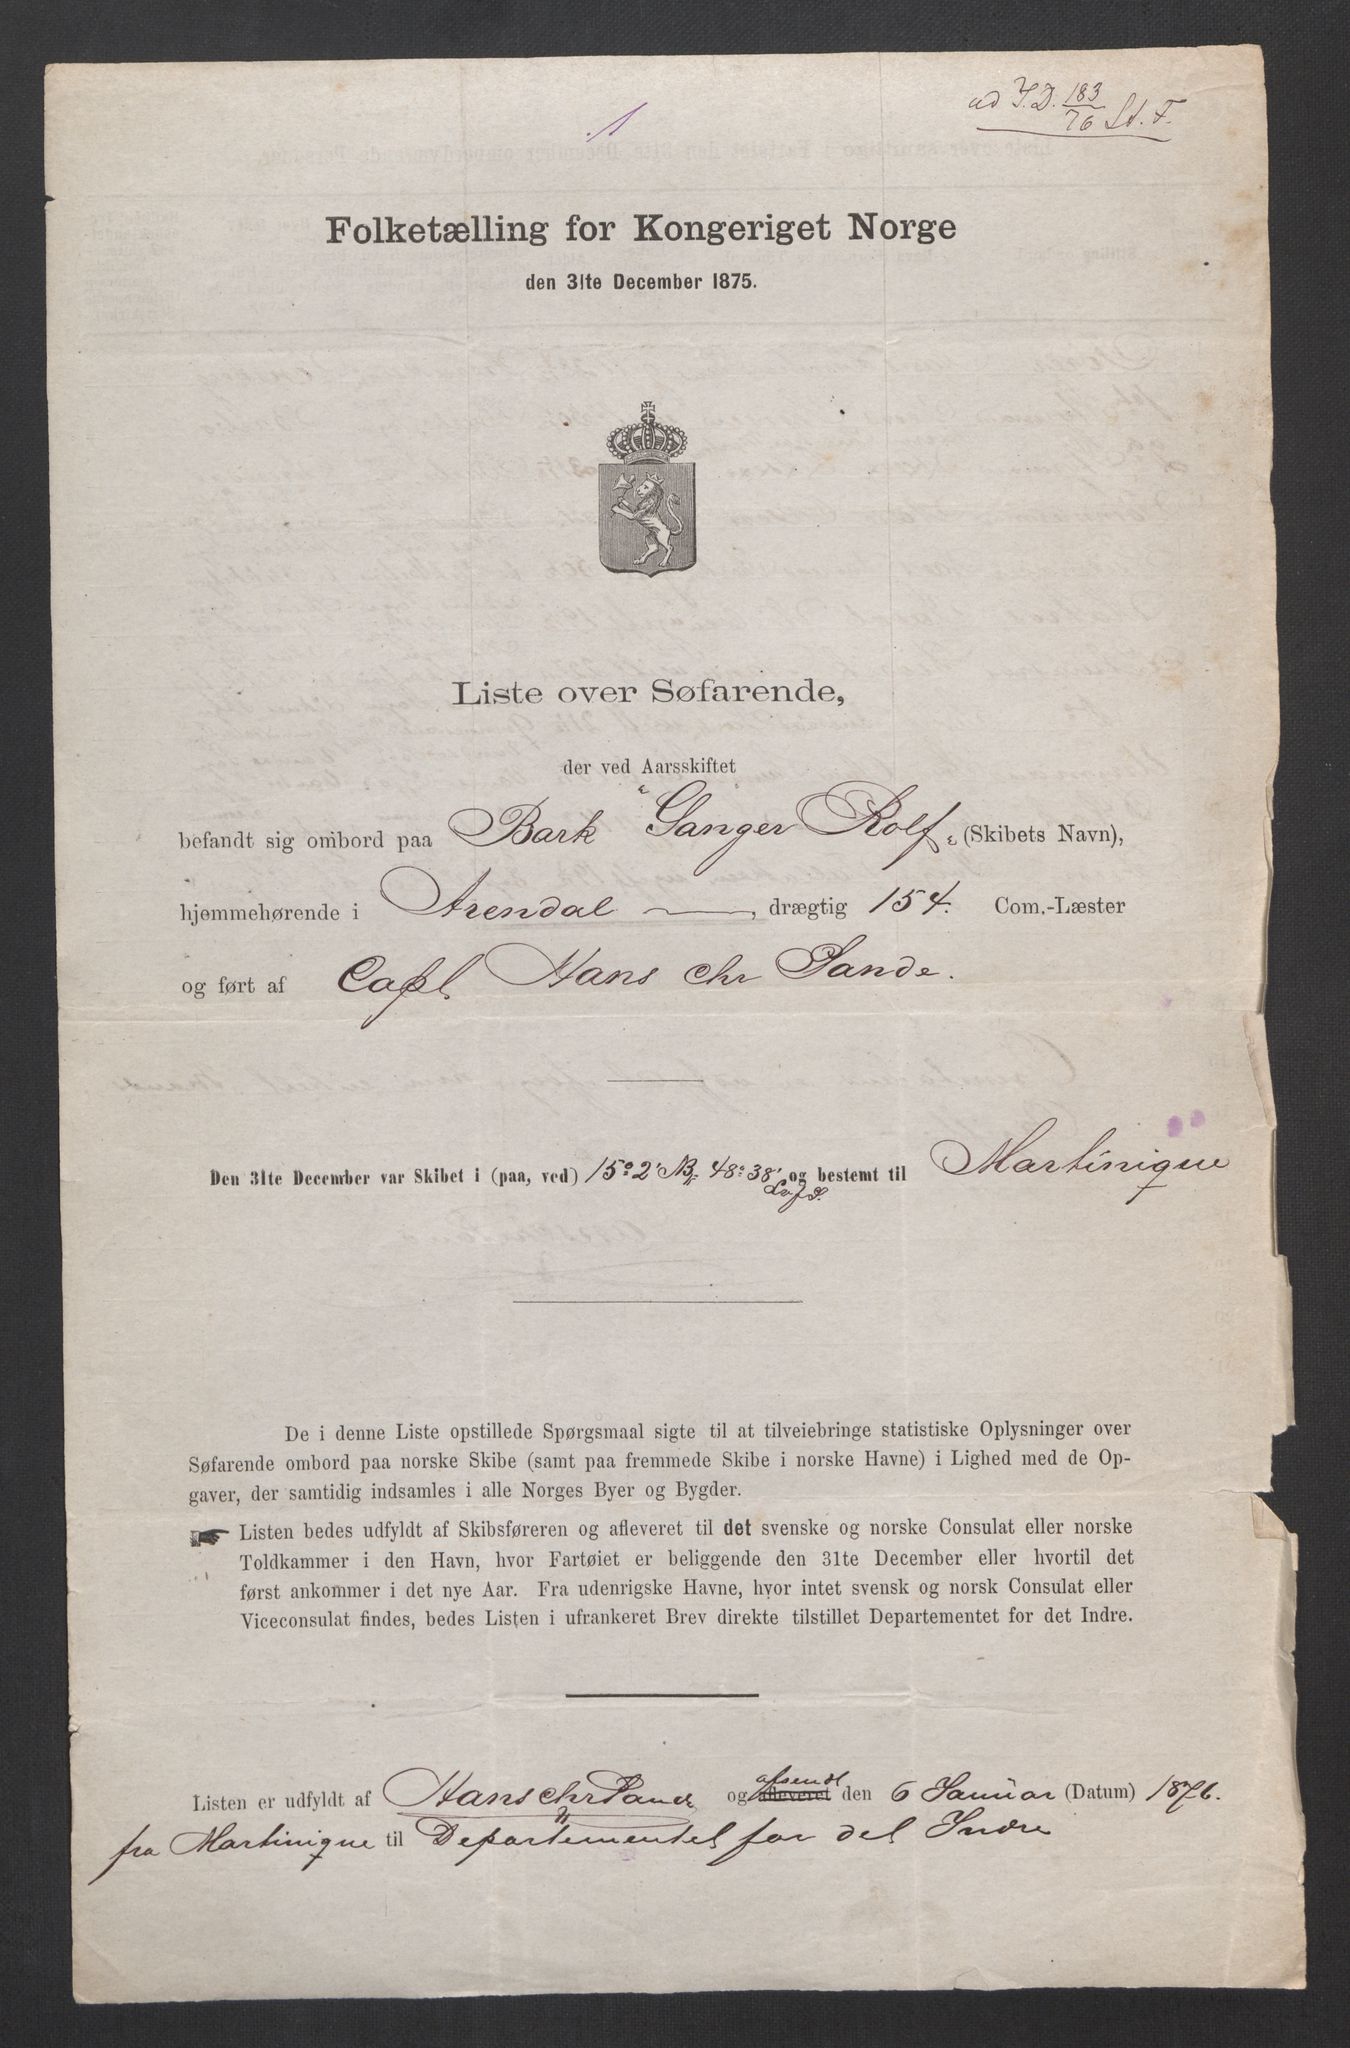 1
ad I.D. 183/76 St. F.
Folketælling for Kongeriget Norge
den 31te December 1875.
Liste over Søfarende,
der ved Aarsskiftet
befandt sig ombord paa Bark "Sanger Rolf" (Skibets Navn),
hjemmehørende i Arendal — , drægtig 154. Com.-Læster
og ført af Capt Hans Chr Sande.
Den 31te December var Skibet i (paa, ved) 15° 2' NB, 48° 38' og bestemt til Martinique
De i denne Liste opstillede Spørgsmaal sigte til at tilveiebringe statistiske Oplysninger over
Søfarende ombord paa norske Skibe (samt paa fremmede Skibe i norske Havne) i Lighed med de Op-
gaver, der samtidig indsamles i alle Norges Byer og Bygder.
Listen bedes udfyldt af Skibsføreren og afleveret til det svenske og norske Consulat eller norske
Toldkammer i den Havn, hvor Fartøiet er beliggende den 31te December eller hvortil det
først ankommer i det nye Aar. Fra udenrigske Havne, hvor intet svensk og norsk Consulat eller
Viceconsulat findes, bedes Listen i ufrankeret Brev direkte tilstillet Departementet for det Indre.
afsendt
Listen er udfyldt af Hans Chr Sande og afleveret den 6 Januar (Datum) 1876.
fra Martinique til Departementet for det Indre